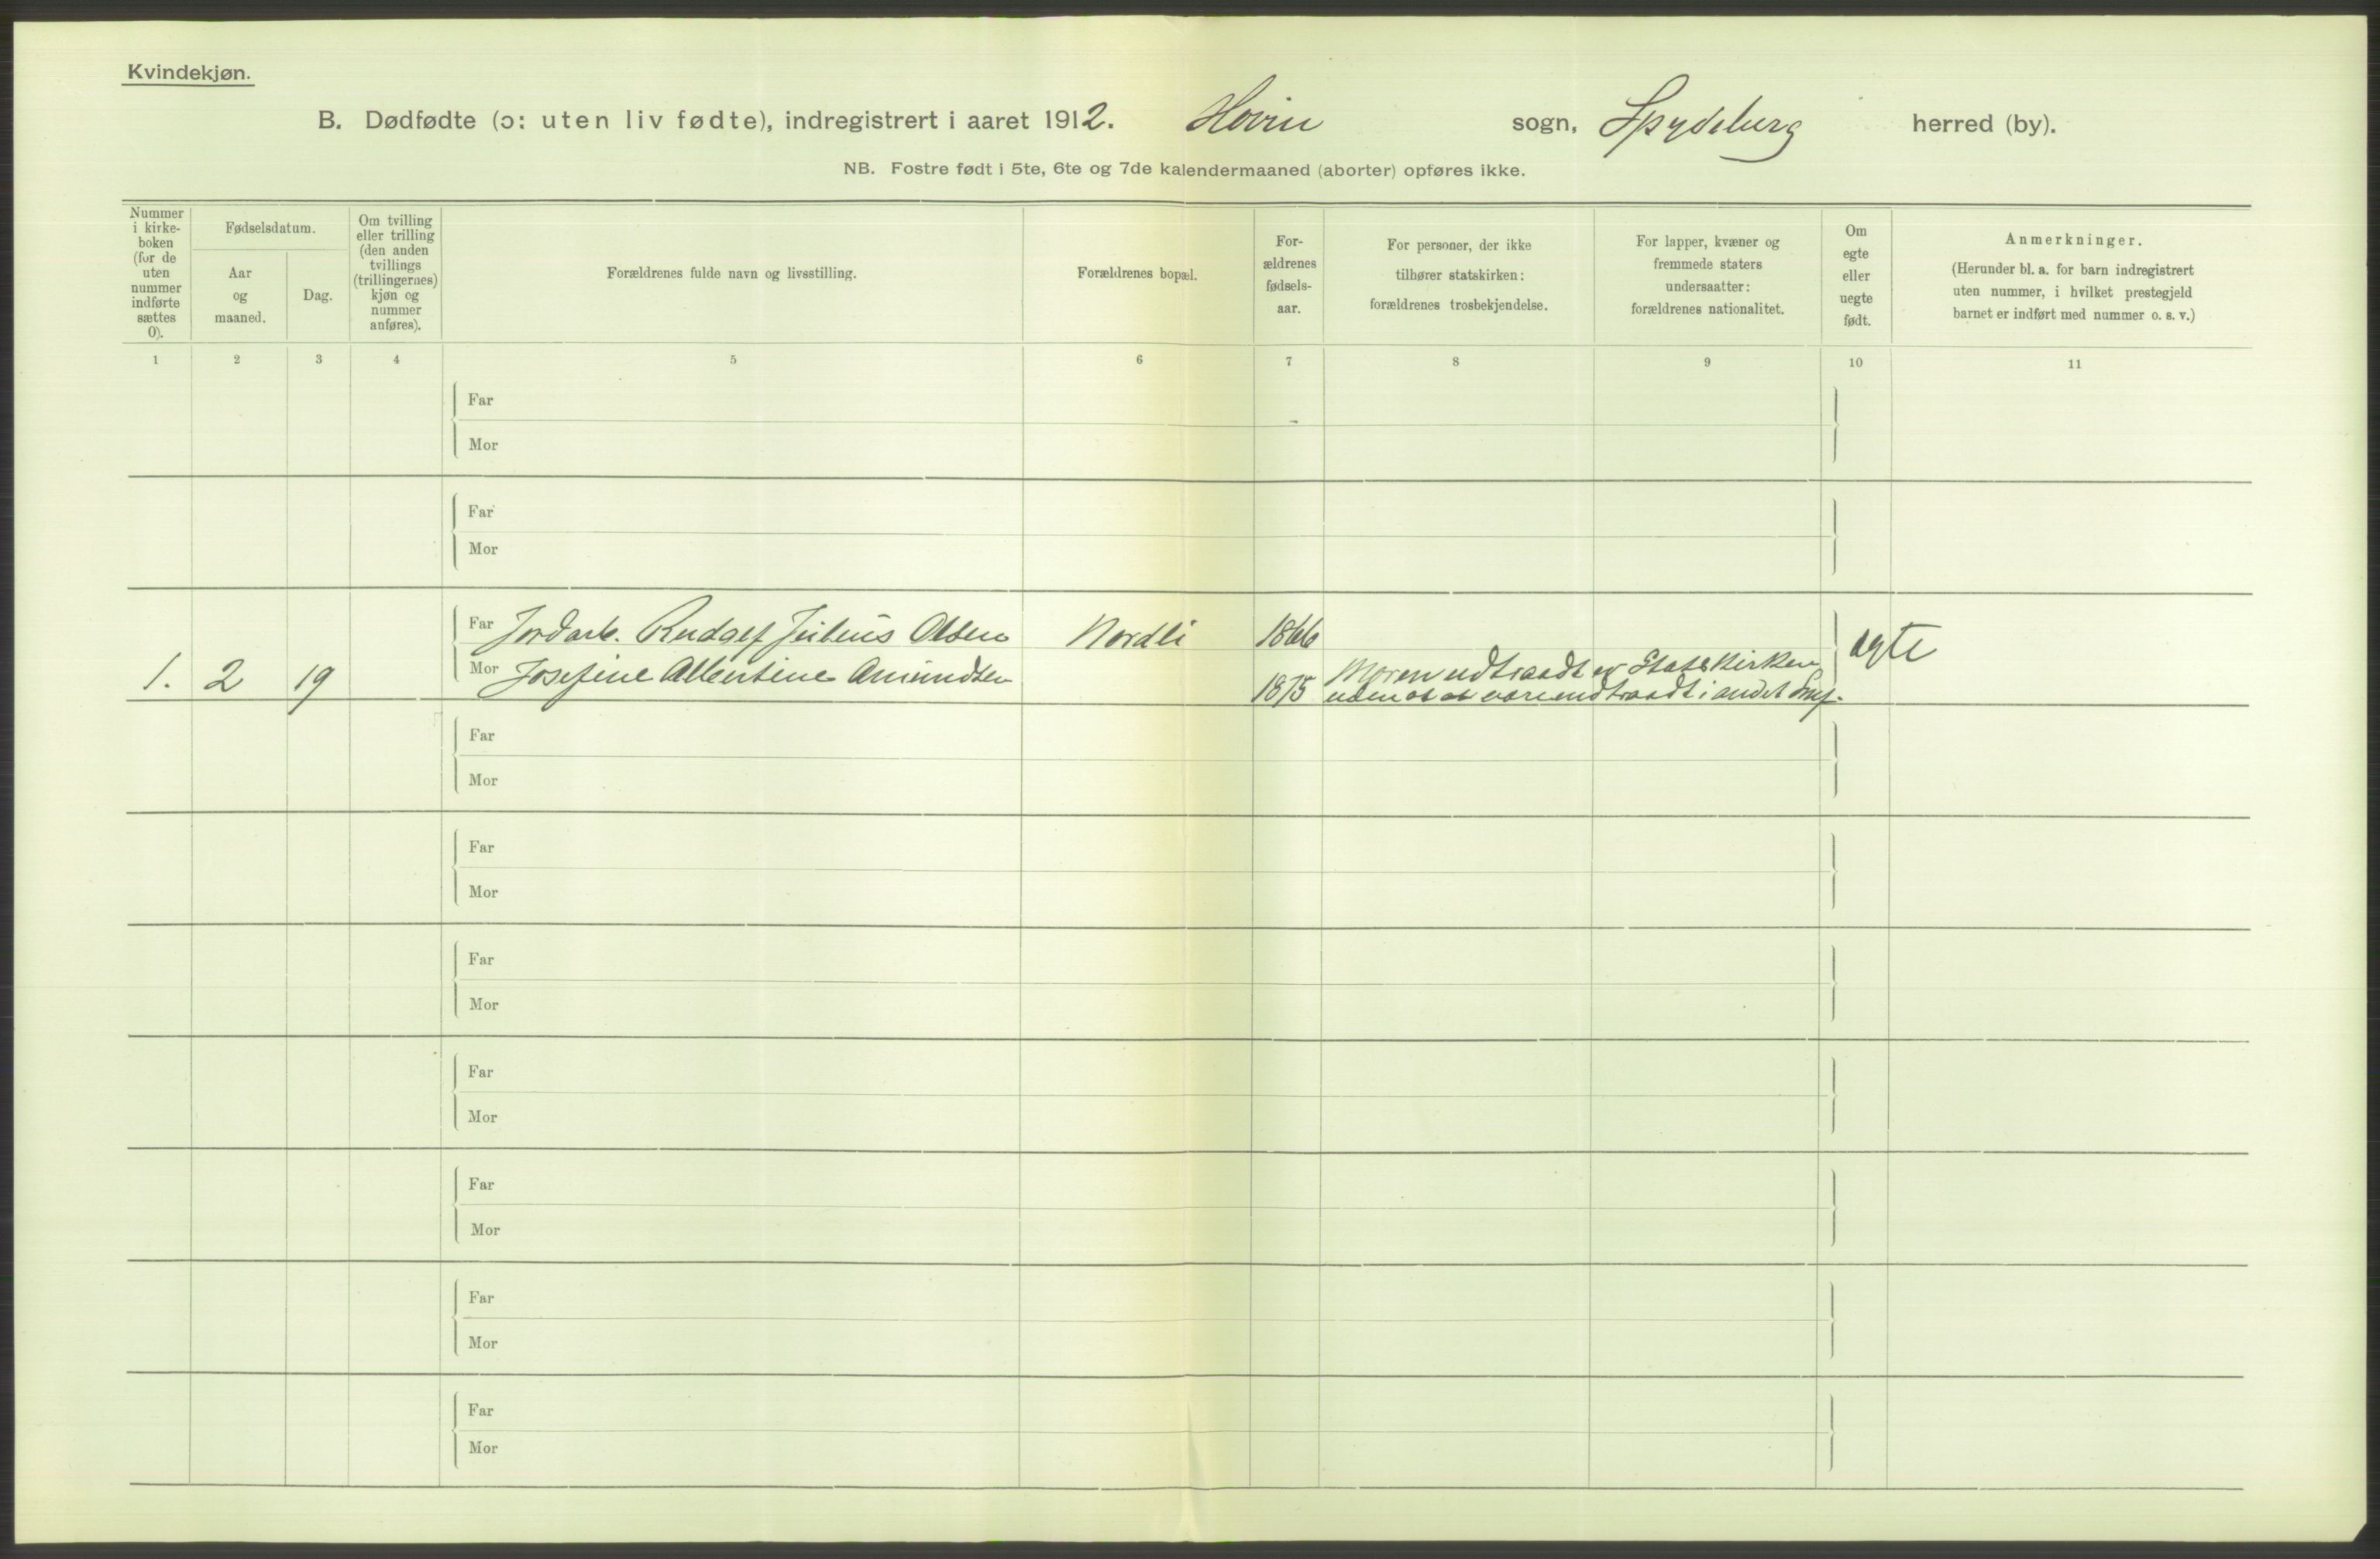 Kvindekjøn.
B. Dødfødte (ɔ: uten liv fødte), indregistrert i aaret 1912. Hovin sogn, Spydeberg herred (by).
NB. Fostre født i 5te, 6te og 7de kalendermaaned (aborter) opføres ikke.
Nummer
i kirke-
boken
(for de
uten
nummer
indførte
sættes
0).
Fødselsdatum.
Aar
og
maaned.
Dag.
Om tvilling
eller trilling
(den anden
tvillings
(trillingernes)
kjøn og
nummer
anføres).
Forældrenes fulde navn og livsstilling.
Forældrenes bopæl.
For-
ældrenes
fødsels-
aar.
For personer, der ikke
tilhører statskirken:
forældrenes trosbekjendelse.
For lapper, kvæner og
fremmede staters
undersaatter:
forældrenes nationalitet.
Om
egte
eller
uegte
født.
Anmerkninger.
(Herunder bl. a. for barn indregistrert
uten nummer, i hvilket prestegjeld
barnet er indført med nummer o. s. v.)
1 2 3 4 5 6 7 8 9 10 11
Far
Mor
Far
Mor
Far Jordarb. Rudolf Julius Olsen Nordli 1866 egte
1. 2 19 Mor Josefine Albertine Amundsen 1875 Moren udtraadt av Statskirken
uden at være indtraadt i andet
Far
Mor
Far
Mor
Far
Mor
Far
Mor
Far
Mor
Far
Mor
Far
Mor